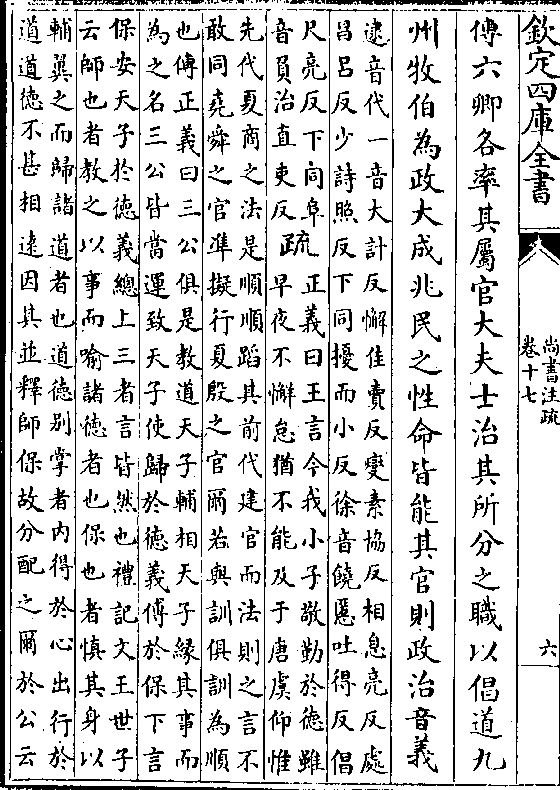 欽定四庫全書
尚書注疏
卷十七
六
傳六卿各率其屬官大夫士治其所分之職以倡道九
州牧伯為政大成兆民之性命皆能其官則政治音義
逮音代一音大計反懈佳賣反變素協反相息亮反處
昌呂反少詩照反下同擾而小反徐音饒慝吐得反倡
尺亮反下同阜
音負治直吏反疏
正義曰王言今我小子敬勤於德雖
早夜不懈怠猶不能及于唐虞仰惟
先代夏商之法是順順蹈其前代建官而法則之言不
敢同堯舜之官準擬行夏殷之官爾若與訓俱訓為順
也傳正義曰三公俱是教道天子輔相天子緣其事而
為之名三公皆當運致天子使歸於德義傳於保下言
保安天子於德義總上三者言皆然也禮記文王世子
云師也者教之以事而喻諸德者也保也者慎其身以
輔翼之而歸諸道者也道德別掌者內得於心出行於
道道德不甚相遠因其並釋師保故分配之爾於公云